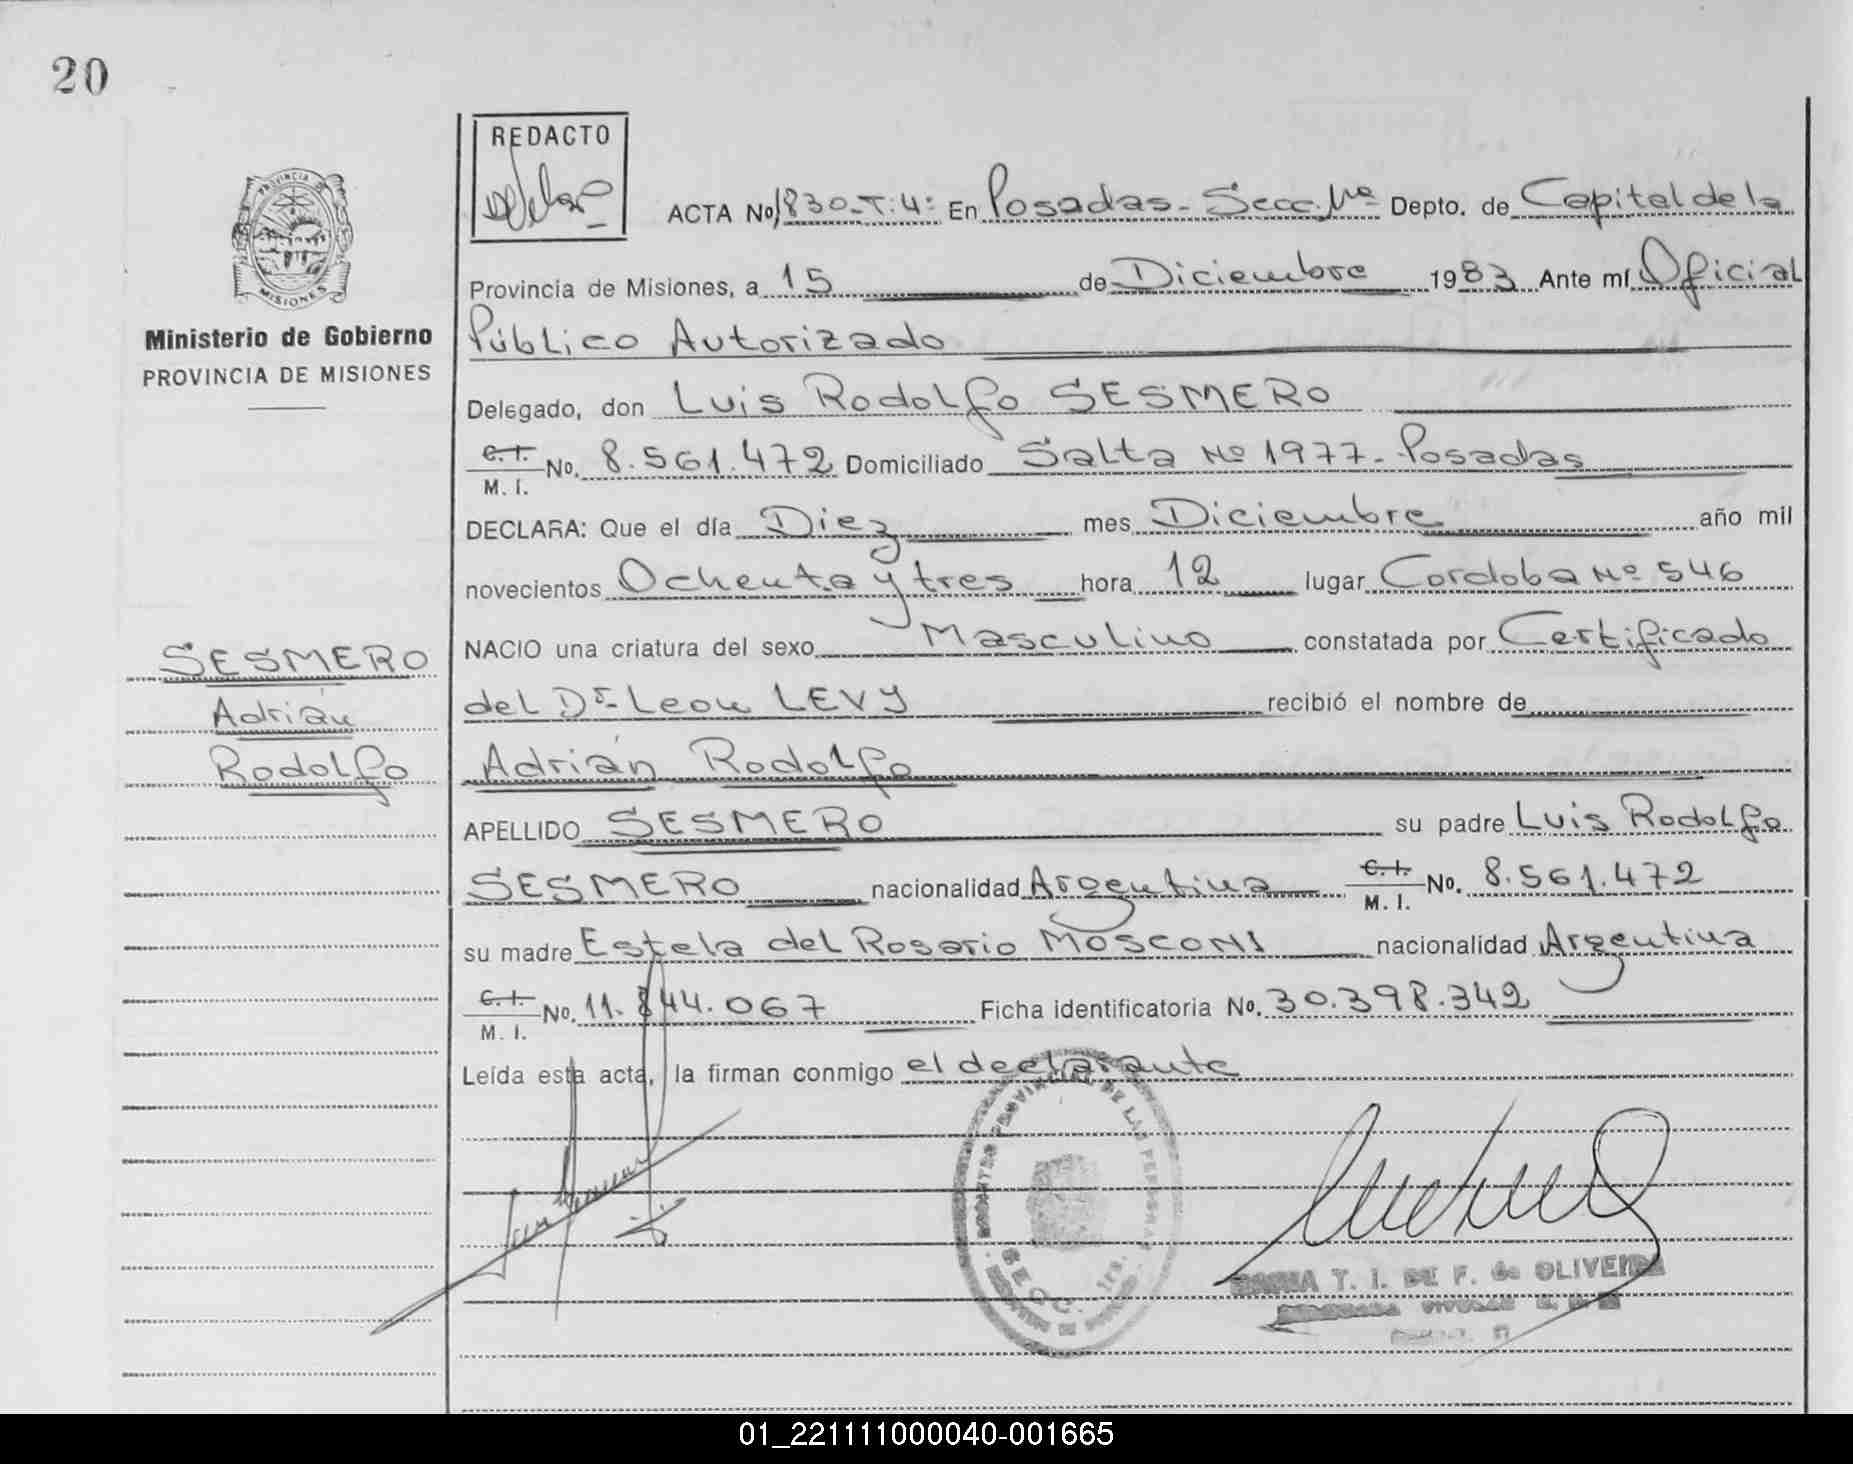 20
REDACTO
PROVINCIA DE
MISIONES
Ministerio de Gobierno
PROVINCIA DE MISIONES
ACTA No 1830-T:4: En Posadas-Secc. 1ra Depto. de Capital de la
Provincia de Misiones, a 15 de Diciembre 1983 Ante mí Oficial
Público Autorizado
Delegado, don Luis Rodolfo SESMERO
C.I. No. 8.561.472 Domiciliado Salta Nº 1977-Posadas
M. I.
DECLARA: Que el día Diez mes Diciembre año mil
novecientos Ochenta y tres hora 12 lugar Cordoba Nº 546
NACIO una criatura del sexo Masculino constatada por Certificado
del Dr- Leon LEVY recibió el nombre de
Adrián Rodolfo
SESMERO
Adrián
Rodolfo
APELLIDO SESMERO su padre Luis Rodolfo
SESMERO nacionalidad Argentina C.I. No. 8.561.472
M. I.
su madre Estela del Rosario MOSCONI nacionalidad Argentina
C.I. No. 11.844.067 Ficha identificatoria No. 30.398.342
M. I.
Leída esta acta, la firman conmigo el declarante
REGISTRO PROVINCIAL DE LAS PERSONAS
SECC. 1ra.
T. I. DE F. de OLIVEIRA
01_221111000040-001665